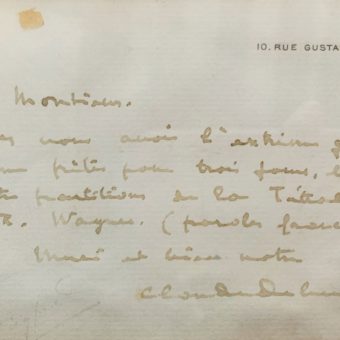 10, RUE GUSTA
Monsieur.
nous avoir l'extrême
prêter pour trois jours,
partitions de la Tétral
R. Wagner. (paroles franç
Merci et bien votre
Claude Debus